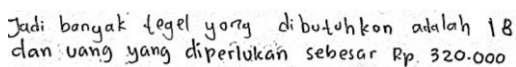 Jadi banyak tegel yang dibutuhkan adalah 18
dan uang yang diperlukan sebesar Rp. 320.000